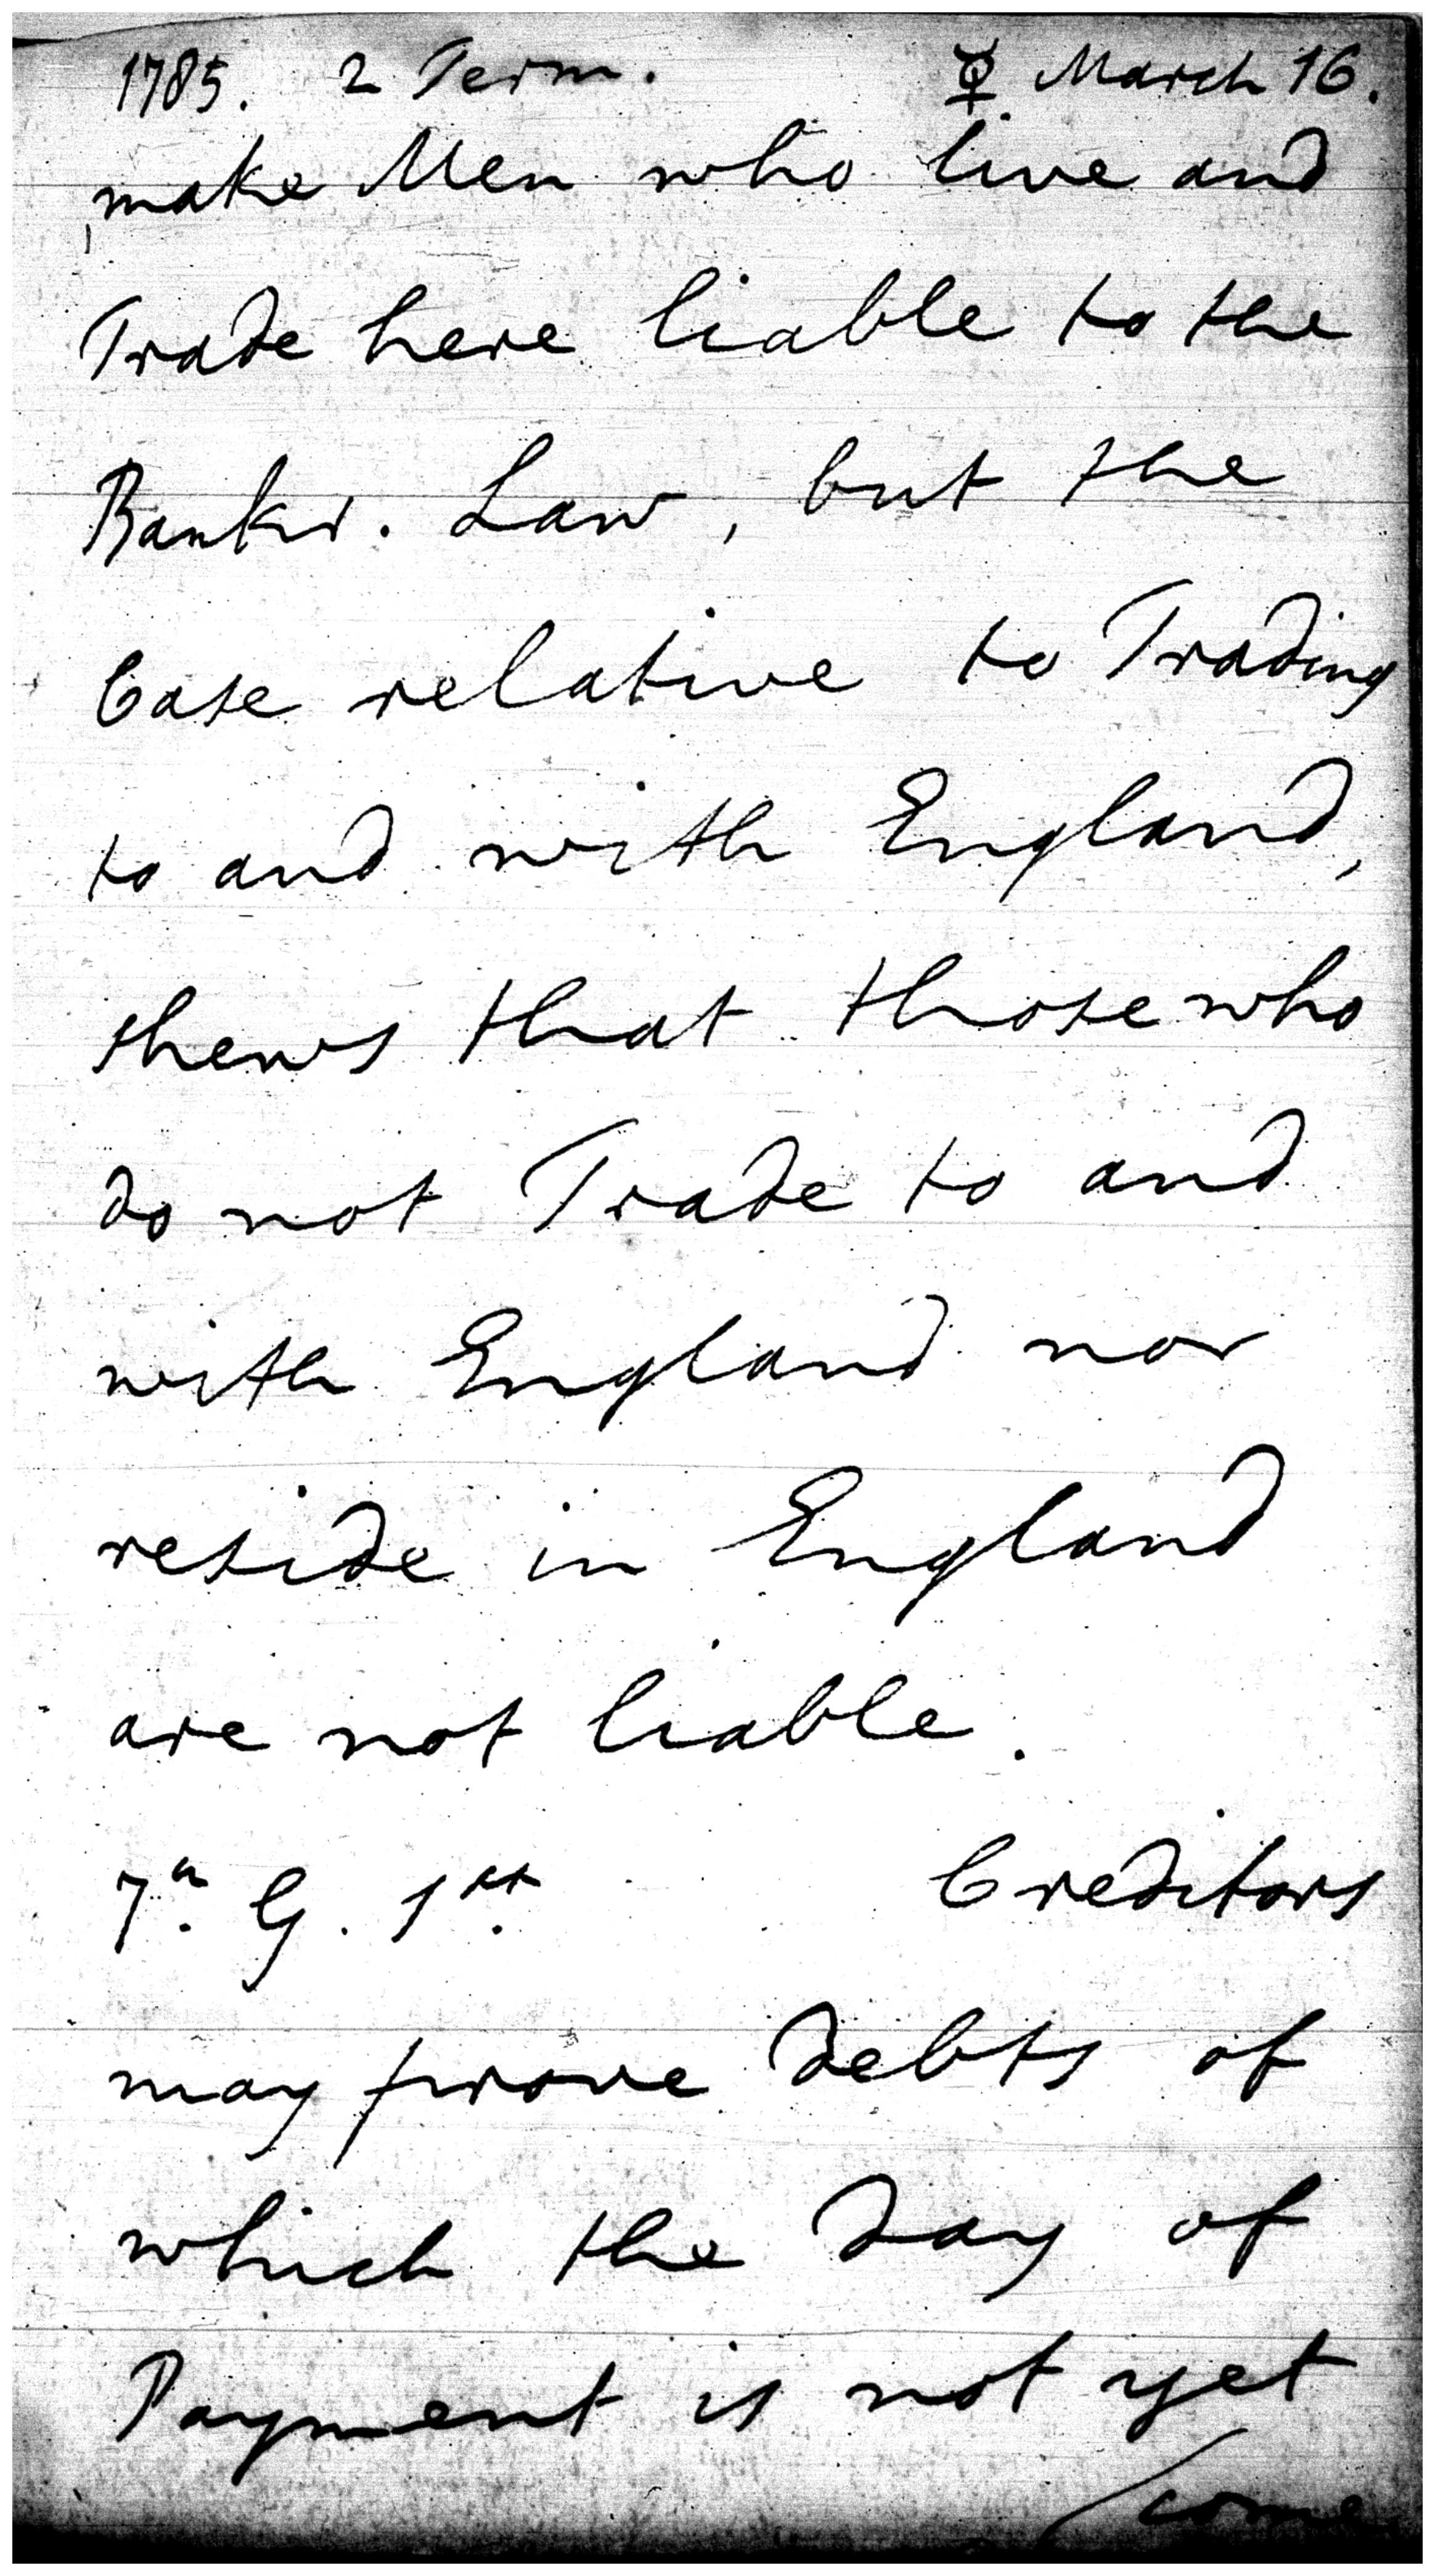 1785. 2 Term. ☿ March 16.
make Men who live and
Trade here liable to the
Bankr. Law, but the
Case relative to Trading
to and with England,
shews that those who
do not Trade to and
with England nor
reside in England
are not liable.
7.ᵃ G. 1.ˢᵗ Creditors
may prove debts of
which the day of
Payment is not yet
come